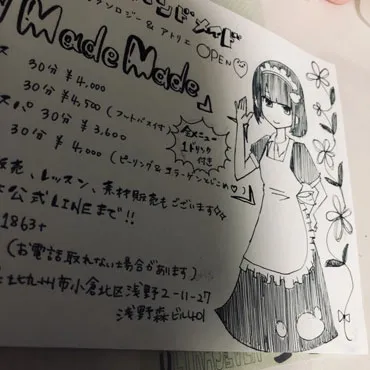 ンドメイド
ソロジー&アトリエ OPEN♡
MadeMade』
ス 30分 ¥4,000
30分 ¥4,500 (フットバス付す)
スパ 30分 ¥3,600
30分 ¥4,000 (ピーリング&コラーゲンとじこめ♡)
全メニュー
1ドリンク
付き
売、レッスン、素材販売もございます☆
公式LINEまで!!
1863+
(お電話取れない場合があります)
北九州市小倉北区浅野2-11-27
浅野森ビル401